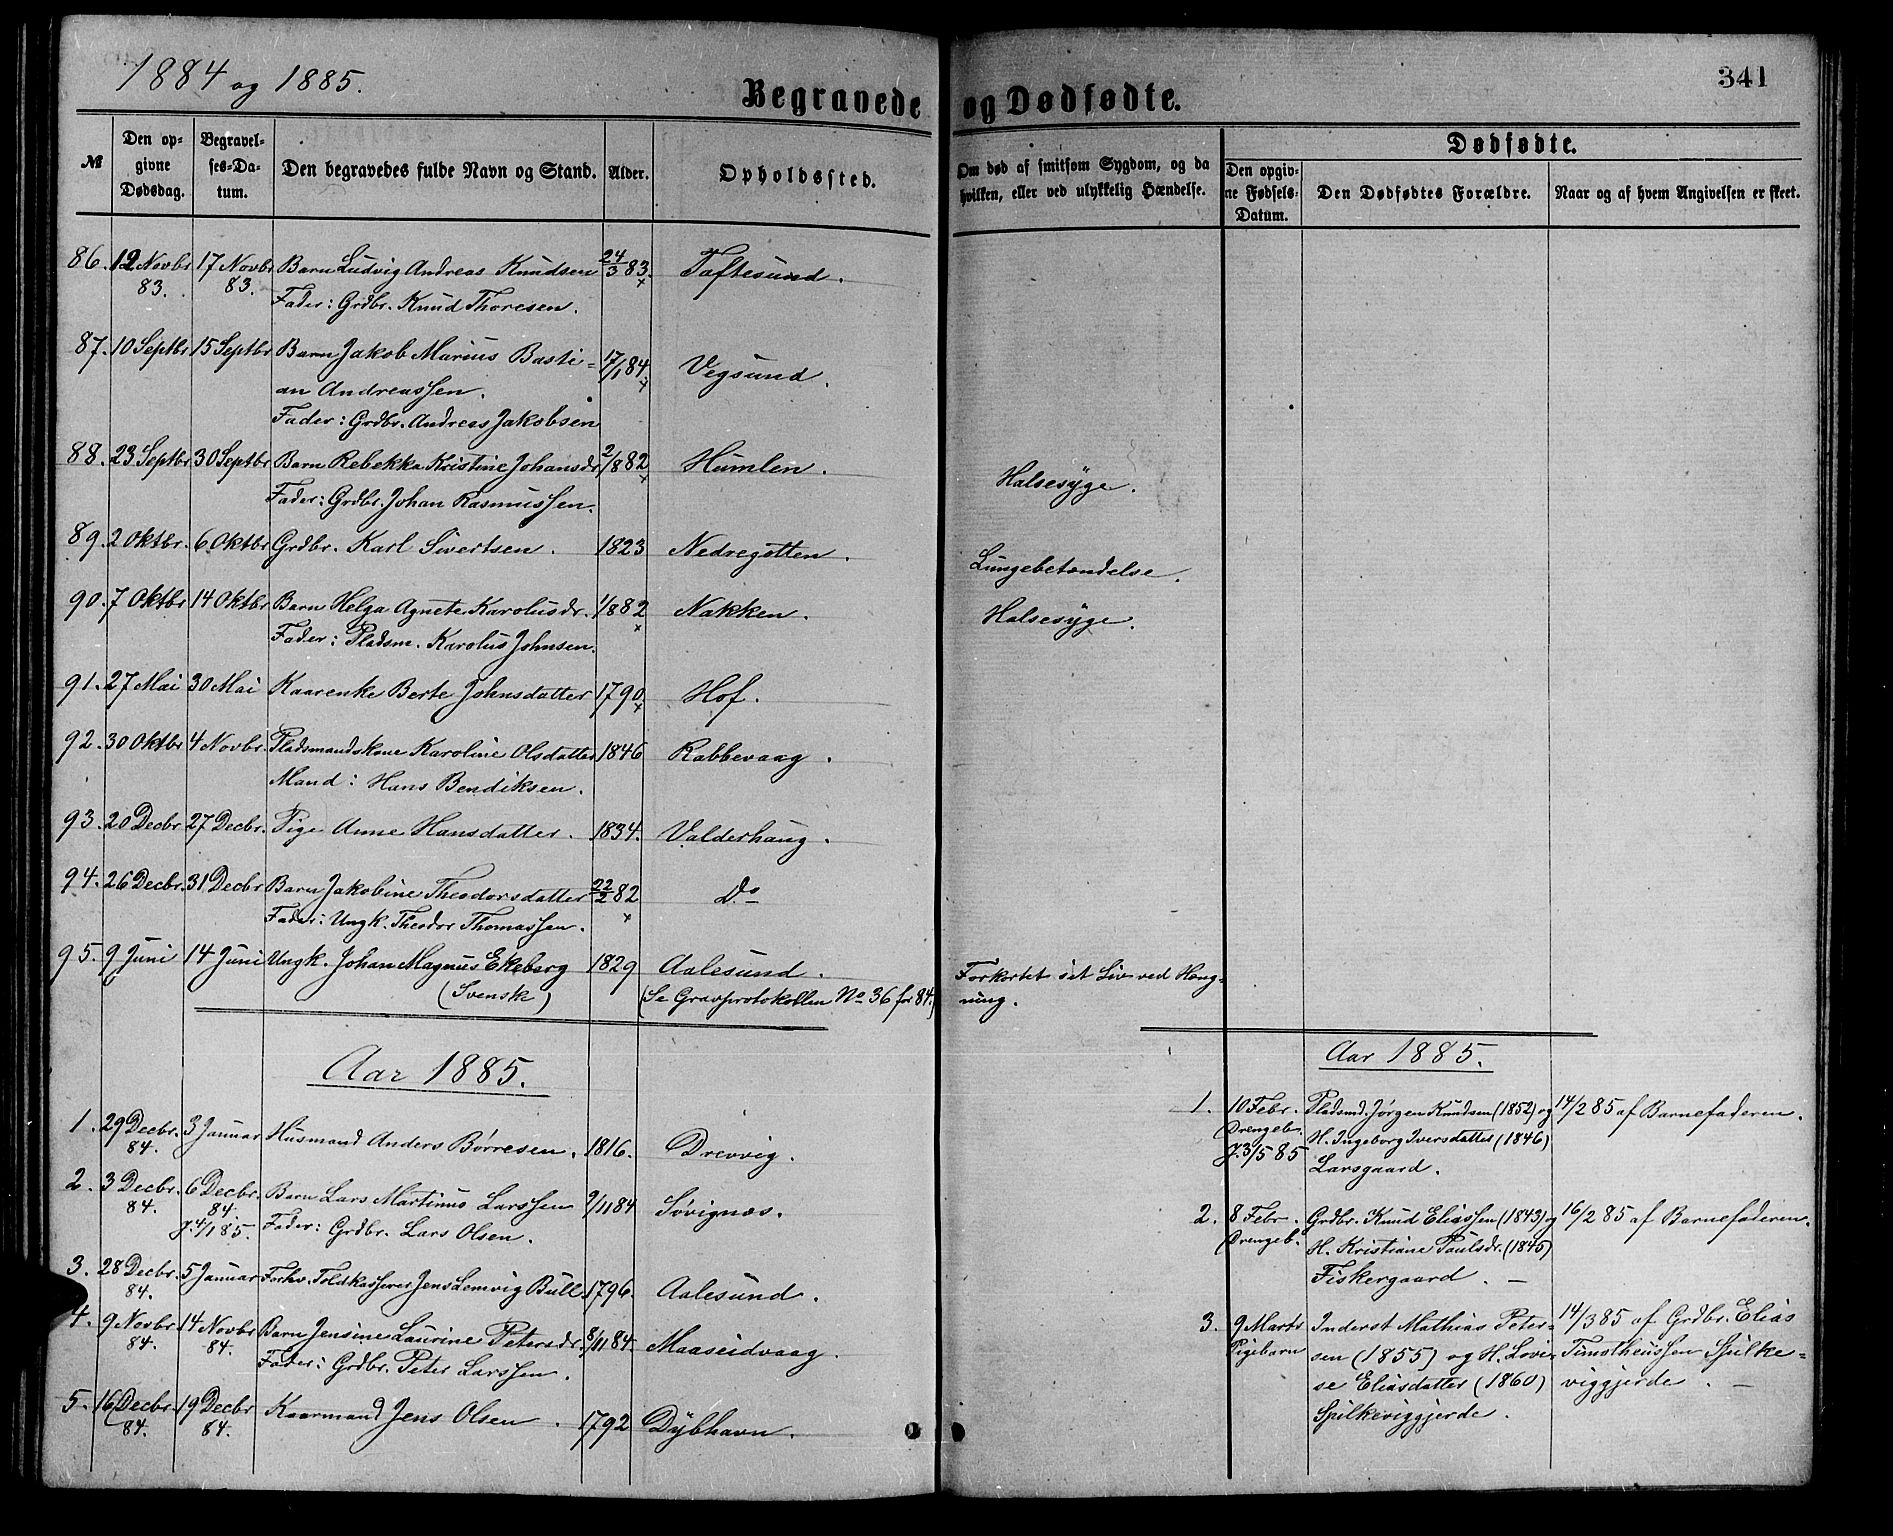 1884 og 1885.
341
Begravede og Dødfødte.
№
Den opgivne Dødsdag.
Begravelses-Datum.
Den begravedes fulde Navn og Stand.
Alder.
Opholdssted.
Om død af smitsom Sygdom, og da hvilken, eller ved ulykkelig Hændelse.
Dødfødte.
Den opgivne Fødsels-Datum.
Den Dødfødtes Forældre.
Naar og af hvem Angivelsen er skeet.
86. 12 Novbr 17 Novbr Barn Ludvig Andreas Knudsen 24/3 83. Toftesund.
83. 83. x
Fader: Grdbr. Knud Thoresen.
87. 10 Septbr 15 Septbr Barn Jakob Marius Basti= 17/1 84. Vegsund.
an Andreassen. x
Fader: Grdbr. Andreas Jakobsen
88. 23 Septbr 30 Septbr Barn Rebekka Kristine Johansdr 2/8 82 Humlen. Halsesyge.
Fader: Grdbr. Johan Rasmussen. x
89. 2 Oktbr. 6 Oktbr Grdbr. Karl Sivertsen. 1823 Nedregotten. Lungebetændelse.
90. 7 Oktbr 14 Oktbr Barn Helga Agnete Karolusdr. 1/8 82 Nakken. Halsesyge.
Fader: Pladsm. Karolus Johnsen. x
91. 27 Mai 30 Mai Kaarenke Berte Johnsdatter 1790. Hof.
x
92. 30 Oktbr 4 Novbr. Pladsmandskone Karoline Olsdatter 1846 Rabbevaag.
Mand: Hans Bendiksen.
93. 20 Decbr 27 Decbr. Pige Anne Hansdatter. 1834. Valderhaug.
94. 26 Decbr. 31 Decbr Barn Jakobine Theodorsdatter 22/2 82 Do
Fader: Ungk. Theodor Thomassen. x
95. 9 Juni 14 Juni Ungk. Johan Magnus Ekeberg 1829 Aalesund. Forkortet sit Liv ved Heng-
(Svensk) (Se Gravprotokollen No 36 for 84.) ning.
Aar 1885.
1. 29 Decbr. 3 Januar Husmand Anders Børresen. 1816. Drevvig.
84.
2. 3 Decbr. 6 Decbr. Barn Lars Martinus Larssen 9/11 84 Søvignæs.
84. 84.
J. 4/1 85. Fader: Grdbr. Lars Olsen.
3. 28 Decbr. 5 Januar Forhv. Toldkasserer Jens Lemvig Bull 1796. Aalesund.
84.
4. 9 Novbr 14 Novbr Barn Jensine Laurine Petersdr. 8/11 84. Maaseidvaag.
84. 84.
Fader: Grdbr. Peter Larssen.
5. 16 Decbr. 19 Decbr Kaarmand Jens Olsen. 1792 Dybhavn.
84. 84.
Aar 1885.
1. 10 Febr. Pladsmd. Jørgen Knudsen (1852) og 14/2 85 af Barnefaderen.
Drengeb. H. Ingeborg Iversdatter (1846)
J. 3/5 85 Larsgaard.
2. 8 Febr. Grdbr. Knud Eliassen (1843) og 16/2 85 af Barnefaderen.
Drengeb. H. Kristiane Paulsdr. (1845)
Fiskergaard. —
3. 9 Marts Inderst Mathias Peter- 14/3 85 af Grdbr. Elias
Pigebarn sen (1855) og H. Lovi- Timotheussen Spilke=
se Eliasdatter (1860) viggjerde. —
Spilkeviggjerde.